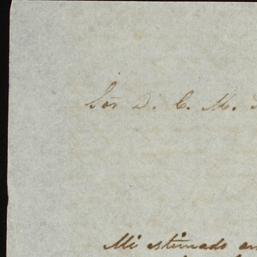 Sor D. C. M.
Mi estimado